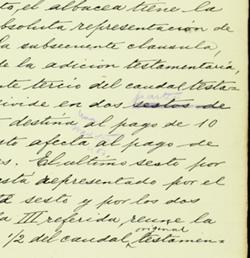 to, el albacea tiene la
absoluta representación de
la subsecuente clausula,
de la adición testamentaria,
te tercio del caudal testa-
divide en dos sestos de
destina al pago de 10
sto afecta al pago de
s. El último sesto por
está representado por el
sesto y por los dos
la III referida, reune la
original
1/2 del caudal, testamen-